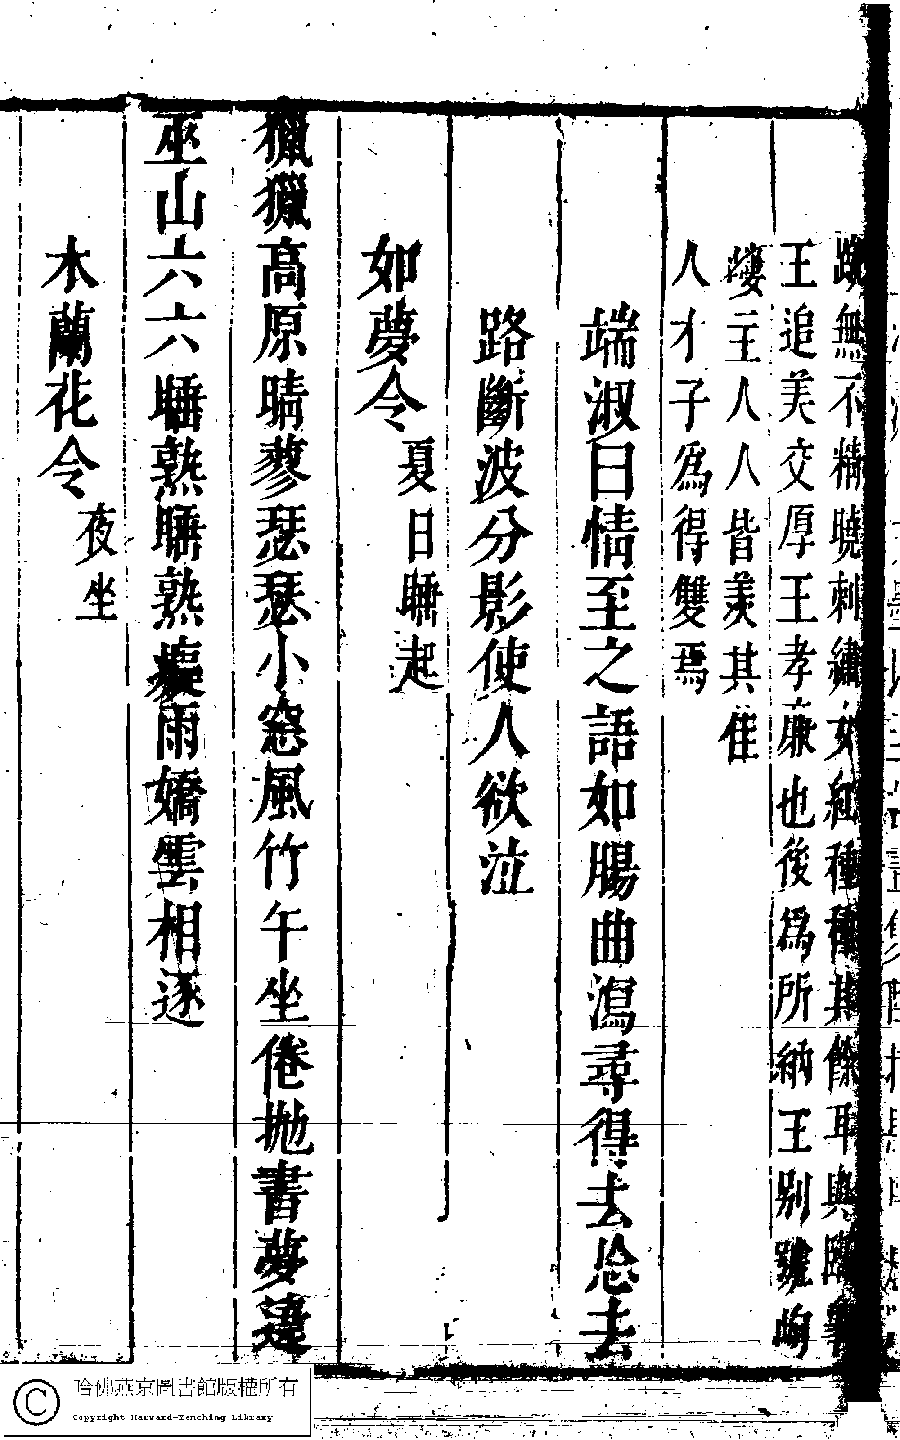 無不精曉刺繡女紅種種其餘耳與
王追美交厚王孝廉也後為所納王別號岣
嶁主人人皆羨其佳
人才子為得雙焉
端淑曰情至之語如腸曲瀉尋得去忩去
路斷波分影使人欲泣
如夢令 夏日睡起
獵獵高原晴蓼瑟瑟小窓風竹午坐倦拋書夢遶
巫山六六睡熟睡熟癡雨嬌雲相逐
木蘭花令 夜坐
哈佛燕京圖書館版權所有
Copyright Harvard-Yenching Library